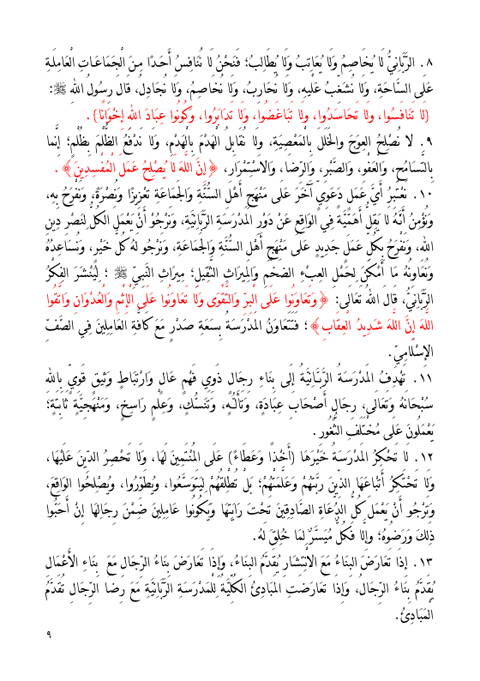 ٨. الرَّبَّانِيُّ لَا يُخَاصِمُ وَلَا يُعَاتِبُ وَلَا يُطَالِبُ؛ فَنَحْنُ لَا نُنَافِسُ أَحَدًا مِنَ الْجَمَاعَاتِ الْعَامِلَةِ
عَلَى السَّاحَةِ، وَلَا نَشْغَبُ عَلَيْهِ، وَلَا نُحَارِبُ، وَلَا نُخَاصِمُ، وَلَا نُجَادِلُ، قَالَ رَسُولُ اللهِ ﷺ:
(لَا تَنَافَسُوا، وَلَا تَحَاسَدُوا، وَلَا تَبَاغَضُوا، وَلَا تَدَابَرُوا، وَكُونُوا عِبَادَ اللهِ إِخْوَانًا).
٩. لَا نُصْلِحُ الْعِوَجَ وَالْخَلَلَ بِالْمَعْصِيَةِ، وَلَا نُقَابِلُ الْهَدْمَ بِالْهَدْمِ، وَلَا نَدْفَعُ الظُّلْمَ بِظُلْمٍ؛ إِنَّمَا
بِالتَّسَامُحِ، وَالْعَفْوِ، وَالصَّبْرِ، وَالرِّضَا، وَالِاسْتِمْرَارِ، ﴿إِنَّ اللَّهَ لَا يُصْلِحُ عَمَلَ الْمُفْسِدِينَ﴾.
١٠. نَعْتَبِرُ أَيَّ عَمَلٍ دَعَوِيٍّ آخَرَ عَلَى مَنْهَجِ أَهْلِ السُّنَّةِ وَالْجَمَاعَةِ تَعْزِيزًا وَنُصْرَةً، وَنَفْرَحُ بِهِ،
وَنُؤْمِنُ أَنَّهُ لَا يَقِلُّ أَهَمِّيَّةً فِي الْوَاقِعِ عَنْ دَوْرِ الْمَدْرَسَةِ الرَّبَّانِيَّةِ، وَنَرْجُو أَنْ يَعْمَلَ الْكُلُّ لِنَصْرِ دِينِ
اللهِ، وَنَفْرَحُ بِكُلِّ عَمَلٍ جَدِيدٍ عَلَى مَنْهَجِ أَهْلِ السُّنَّةِ وَالْجَمَاعَةِ، وَنَرْجُو لَهُ كُلَّ خَيْرٍ، وَنُسَاعِدُهُ
وَنُعَاوِنُهُ مَا أَمْكَنَ لِحَمْلِ الْعِبْءِ الضَّخْمِ وَالْمِيرَاثِ الثَّقِيلِ؛ مِيرَاثِ النَّبِيِّ ﷺ؛ لِيُنْشَرَ الْفِكْرُ
الرَّبَّانِيُّ، قَالَ اللهُ تَعَالَى: ﴿وَتَعَاوَنُوا عَلَى الْبِرِّ وَالتَّقْوَى وَلَا تَعَاوَنُوا عَلَى الْإِثْمِ وَالْعُدْوَانِ وَاتَّقُوا
اللَّهَ إِنَّ اللَّهَ شَدِيدُ الْعِقَابِ﴾؛ فَتَتَعَاوَنُ الْمَدْرَسَةُ بِسَعَةِ صَدْرٍ مَعَ كَافَّةِ الْعَامِلِينَ فِي الصَّفِّ
الْإِسْلَامِيِّ.
١١. تَهْدِفُ الْمَدْرَسَةُ الرَّبَّانِيَّةُ إِلَى بِنَاءِ رِجَالٍ ذَوِي فَهْمٍ عَالٍ وَارْتِبَاطٍ وَثِيقٍ قَوِيٍّ بِاللهِ
سُبْحَانَهُ وَتَعَالَى، رِجَالٍ أَصْحَابِ عِبَادَةٍ، وَتَأَلُّهٍ، وَتَنَسُّكٍ، وَعِلْمٍ رَاسِخٍ، وَمَنْهَجِيَّةٍ ثَابِتَةٍ؛
يَعْمَلُونَ عَلَى مُخْتَلِفِ الثُّغُورِ.
١٢. لَا تَحْتَكِرُ الْمَدْرَسَةُ خَيْرَهَا (أَخْذًا وَعَطَاءً) عَلَى الْمُنْتَمِينَ لَهَا، وَلَا تَحْصُرُ الدِّينَ عَلَيْهَا،
وَلَا تَحْتَكِرُ أَتْبَاعَهَا الَّذِينَ رَبَّتْهُمْ وَعَلَّمَتْهُمْ؛ بَلْ تُطْلِقُهُمْ لِيَتَوَسَّعُوا، وَيُطَوِّرُوا، وَيُصْلِحُوا الْوَاقِعَ،
وَنَرْجُو أَنْ يَعْمَلَ كُلُّ الدُّعَاةِ الصَّادِقِينَ تَحْتَ رَايَتِهَا وَيَكُونُوا عَامِلِينَ ضِمْنَ رِجَالِهَا إِنْ أَحَبُّوا
ذَلِكَ وَرَضُوهُ؛ وَإِلَّا فَكُلٌّ مُيَسَّرٌ لِمَا خُلِقَ لَهُ.
١٣. إِذَا تَعَارَضَ الْبِنَاءُ مَعَ الِانْتِشَارِ يُقَدَّمُ الْبِنَاءُ، وَإِذَا تَعَارَضَ بِنَاءُ الرِّجَالِ مَعَ بِنَاءِ الْأَعْمَالِ
يُقَدَّمُ بِنَاءُ الرِّجَالِ، وَإِذَا تَعَارَضَتِ الْمَبَادِئُ الْكُلِّيَّةُ لِلْمَدْرَسَةِ الرَّبَّانِيَّةِ مَعَ رِضَا الرِّجَالِ تُقَدَّمُ
الْمَبَادِئُ.
٩